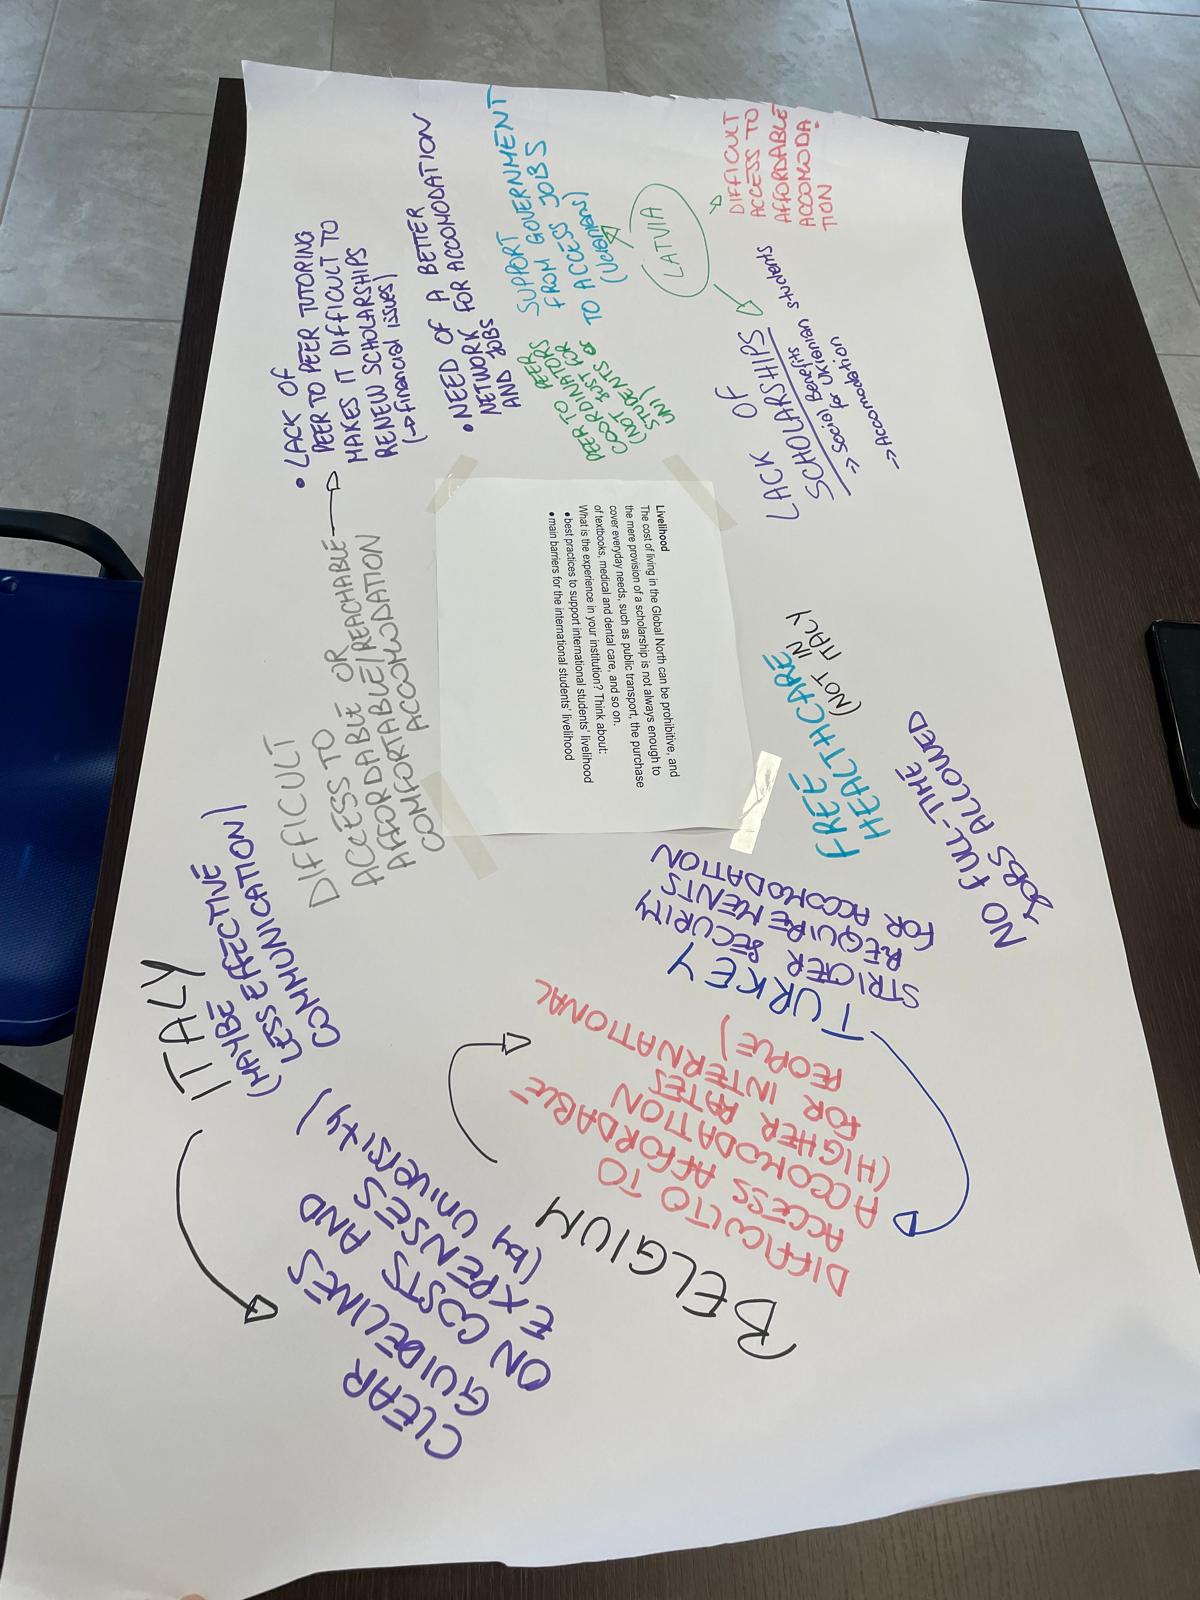 Livelihood
The cost of living in the Global North can be prohibitive, and
the mere provision of a scholarship is not always enough to
cover everyday needs, such as public transport, the purchase
of textbooks, medical and dental care, and so on.
What is the experience in your institution? Think about:
• best practices to support international students' livelihood
• main barriers for the international students' livelihood
• LACK OF
PEER TO PEER TUTORING
MAKES IT DIFFICULT TO
RENEW SCHOLARSHIPS
(→ financial issues)
• NEED OF A BETTER
NETWORK FOR ACCOMODATION
AND JOBS
SUPPORT
FROM GOVERNMENT
TO ACCESS JOBS
(Ucranians)
PEER TO PEER
COORDINATORS
(NOT JUST FOR
STUDENTS OF
UNI)
LATVIA
DIFFICULT
ACCESS TO
AFFORDABLE
ACCOMODA
TION
LACK OF
SCHOLARSHIPS
→ Social Benefits
for Ukrenian students
→ Accomodation
DIFFICULT
ACCESS TO OR
AFFORDABLE/REACHABLE
COMFORTABLE
ACCOMODATION
ITALY
(MAYBE
LESS EFFECTIVE
COMMUNICATION)
CLEAR
GUIDELINES
ON COSTS AND
EXPENSES
(by UNIVERSITY)
BELGIUM
DIFFICULTO TO
ACCESS AFFORDABLE
ACCOMODATION
(HIGHER RATES
FOR INTERNATIONAL
PEOPLE)
TURKEY
STRICTER SECURITY
REQUIREMENTS
FOR ACCOMODATION
FREE
HEALTHCARE
(NOT IN
ITALY
NO FULL-TIME
JOBS ALLOWED